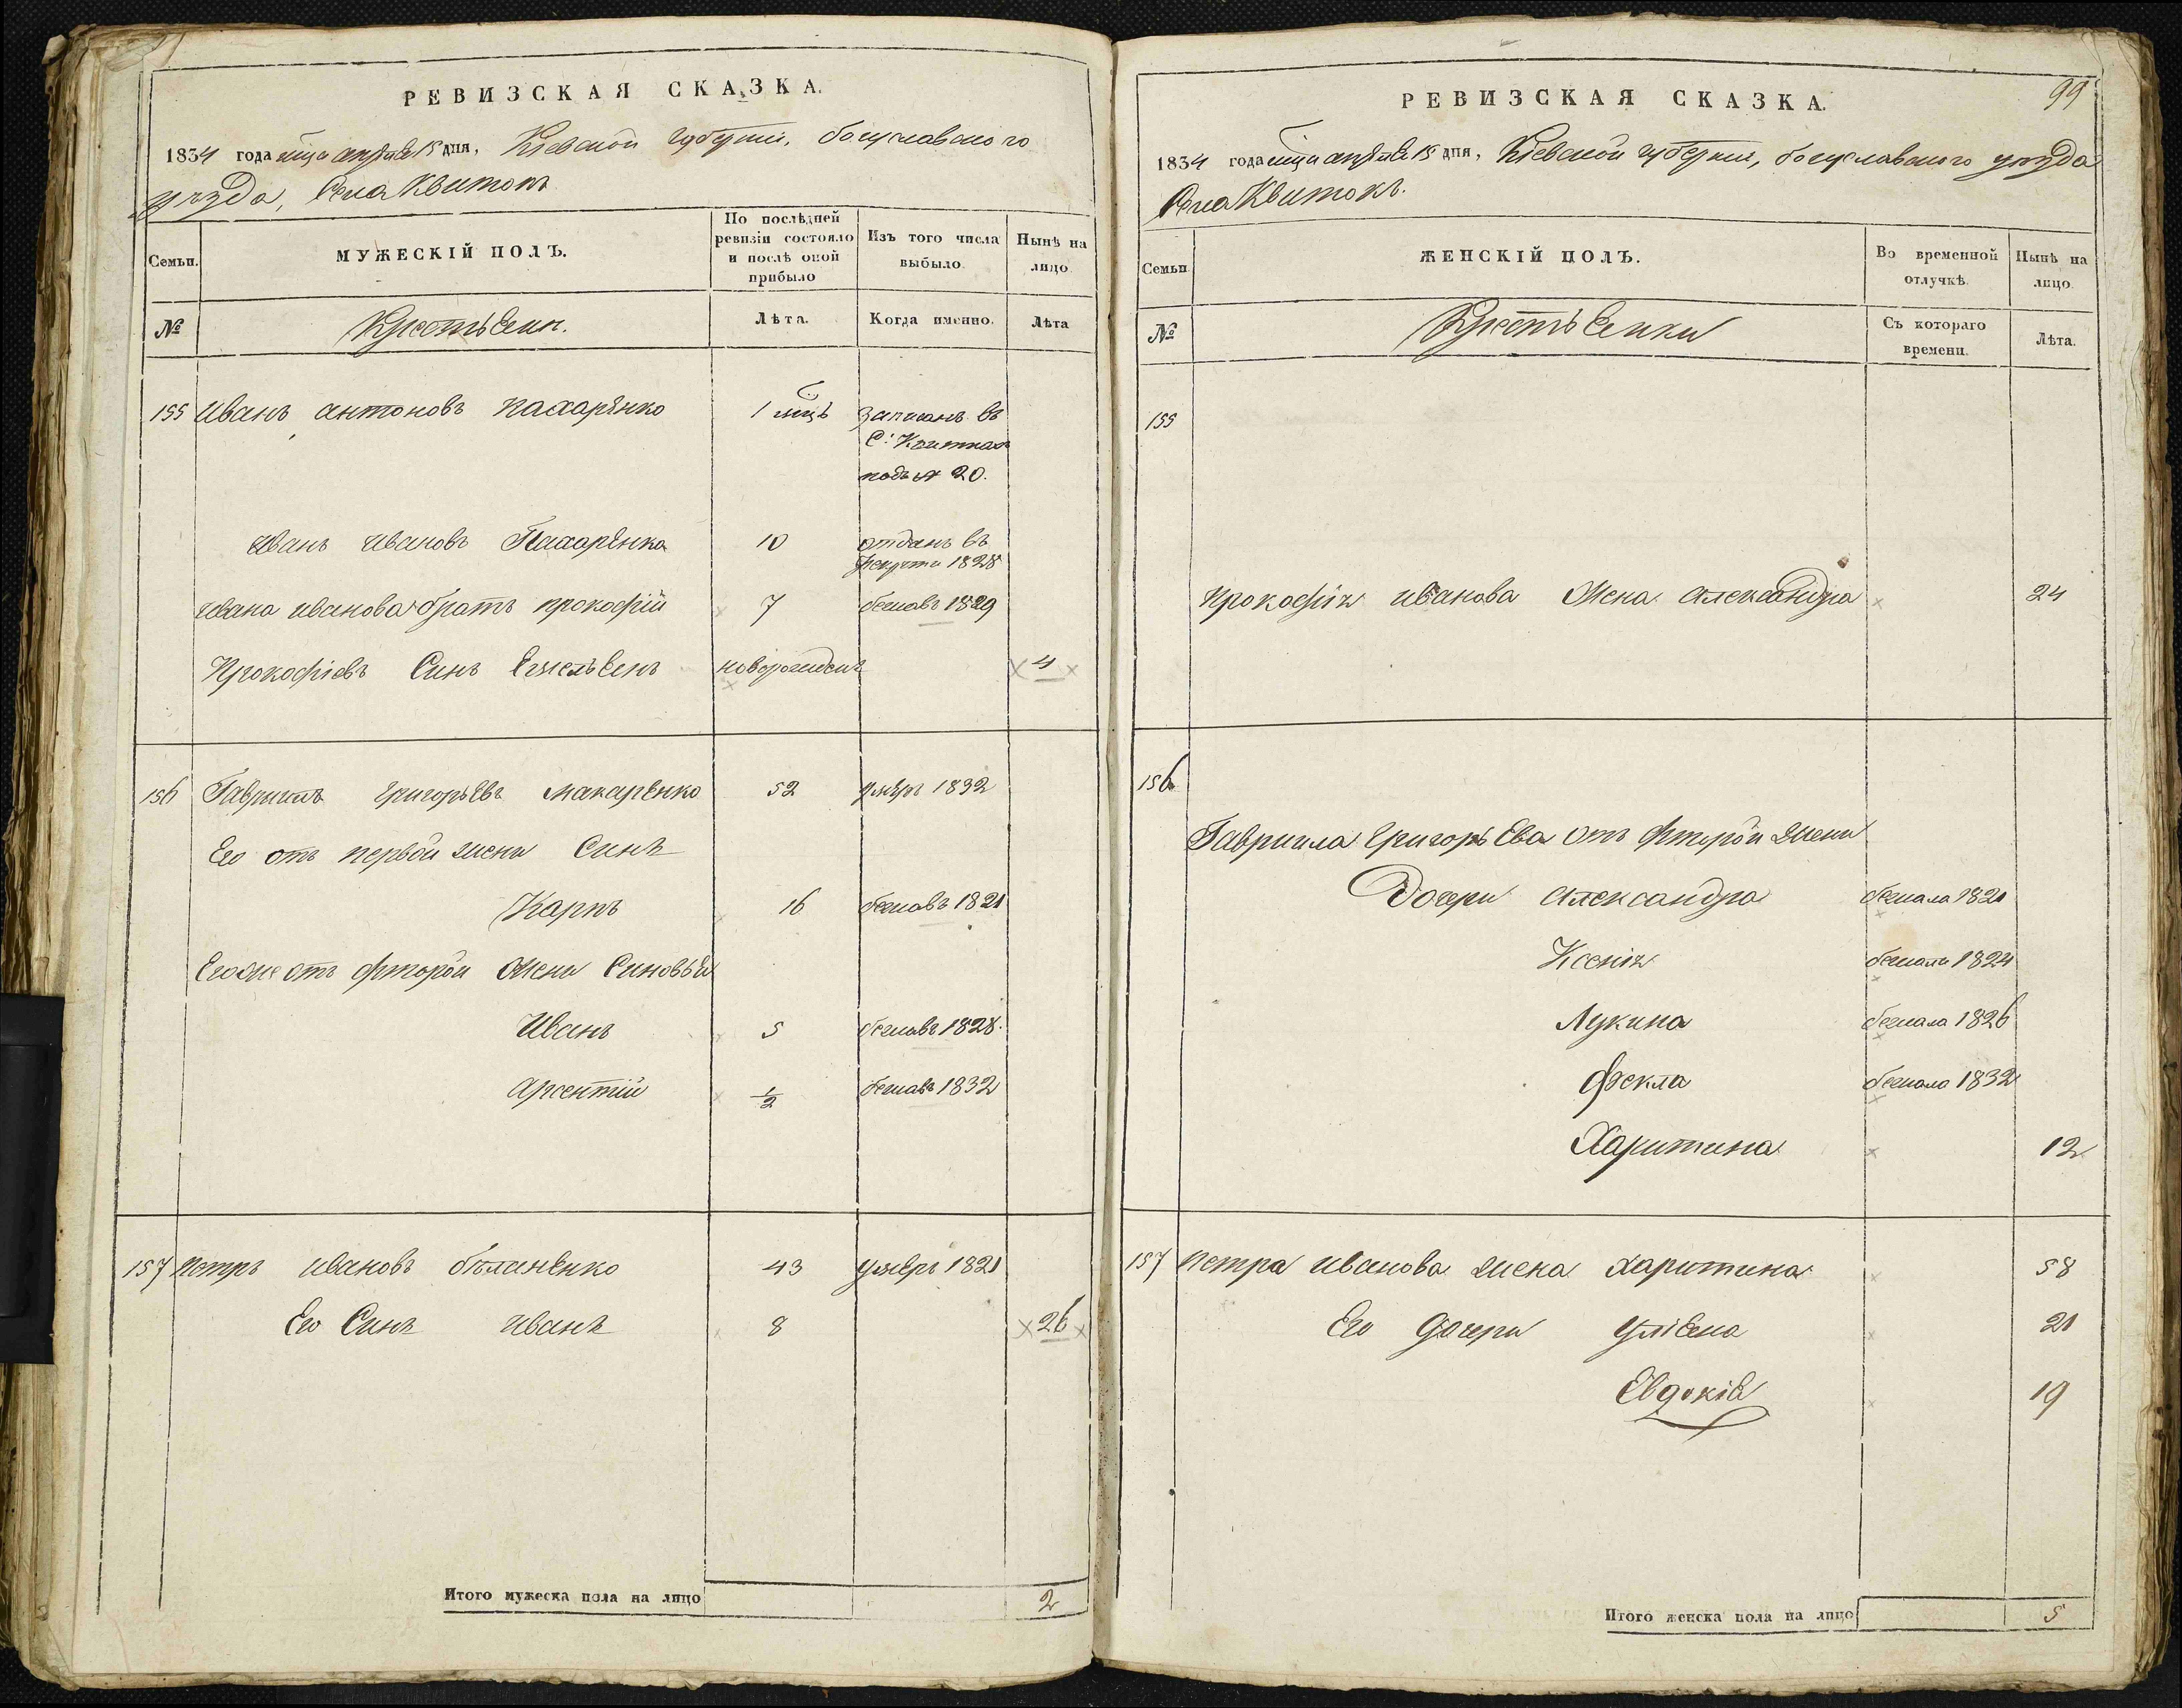 РЕВИЗСКАЯ СКАЗКА.
1834 года мца апреля 15 дня, Кіевской губерніи, богуславского
уезда, Села Квитокъ
Семьи.
МУЖЕСКІЙ ПОЛЪ.
По послѣдней ревизіи состояло и послѣ оной прибыло
Изъ того числа выбыло
Нынѣ на лицо
№
Крестьяне.
Лѣта.
Когда именно.
Лѣта
155 Иванъ антоновъ
записанъ въ
С: Квиткахъ
подъ № 20.
Иванъ Ивановъ 10 отданъ въ
рекруты 1828
Ивана Иванова братъ прокофій 7 бежавъ 1829
Прокофіевъ Синъ новорожденъ 4
156 Гавриилъ григорьевъ макаренко 52 умеръ 1832
Его отъ первой жени Синъ
Карпъ 16 бежавъ 1821
Егоже отъ фторой жени Синовья
Иванъ 5 бежавъ 1828.
Арсентій 1/2 бежавъ 1832
157 Петръ Ивановъ 43 умеръ 1821
Его Синъ иванъ 8 26
Итого мужеска пола на лицо 2
РЕВИЗСКАЯ СКАЗКА.
99
1834 года мца апреля 15 дня, Кіевской губерніи, богуславского уезда
Села Квитокъ.
Семьи
ЖЕНСКІЙ ПОЛЪ.
Во временной отлучкѣ.
Нынѣ на лицо.
№
Крестьянки
Съ котораго времени.
Лѣта.
155
прокофія иванова Жена александра 24
156
Гавриила Григорьева отъ фторой жени
Дочери александра бежала 1821
Ксенія бежала 1824
Лукина бежала 1826
Фекла бежала 1832
Харитина 12
157 петра иванова жена харитина 58
Его дочери уліяна 21
Евдокія 19
Итого женска пола на лицо 5